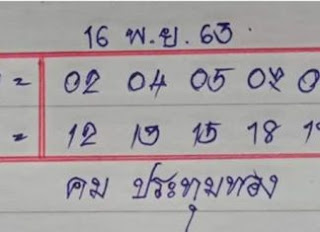 16 พ.ย. 63
= 02 04 05 08
= 12 13 15 18
คม ประทุมทอง